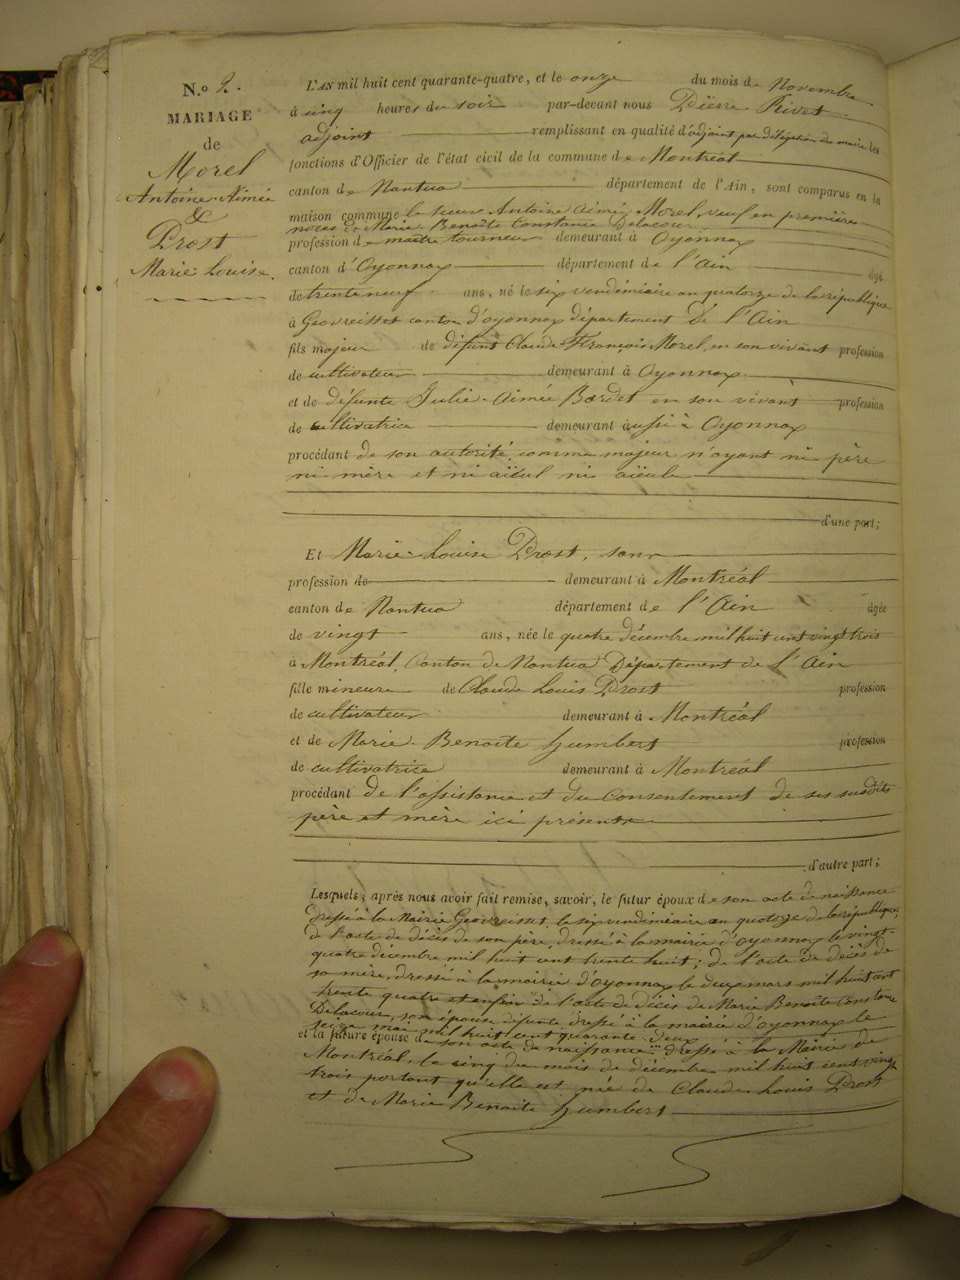 N.o 2.
MARIAGE
de
Morel
Antoine Aimée
&
Prost
Marie Louise.
L'AN mil huit cent quarante-quatre, et le onze du mois de Novembre
à cinq heures du soir par-devant nous Pierre Rivet
adjoint remplissant en qualité d'adjoint par délégation du maire les
fonctions d'Officier de l'état civil de la commune de Montréal
canton de Nantua département de l'Ain, sont comparus en la
maison commune le sieur Antoine Aimé Morel, veuf en première
noces de Marie Benoîte Constance Delacour
profession de maître tourneur demeurant à Oyonnax
canton d'Oyonnax département de l'Ain âgé
de trente neuf ans, né le six vendémiaire an quatorze de la république
à Geovreisset canton d'oyonnax département de l'Ain
fils majeur de défunt Claude François Morel, en son vivant profession
de cultivateur demeurant à Oyonnax
et de défunte Julie Aimée Bardet en son vivant profession
de cultivatrice demeurant aussi à Oyonnax
procédant de son autorité, comme majeur n'ayant ni père
ni mère et ni aïeul ni aïeule
d'une part;
Et Marie Louise Prost, sans
profession de demeurant à Montréal
canton de Nantua département de l'Ain âgée
de vingt ans, née le quatre décembre mil huit cent vingt trois
à Montréal Canton de Nantua Département de l'Ain
fille mineure de Claude Louis Prost profession
de cultivateur demeurant à Montréal
et de Marie Benoîte humbert profession
de cultivatrice demeurant à Montréal
procédant de l'assistance et du Consentement de ses susdits
père et mère ici présents
d'autre part;
Lesquels, après nous avoir fait remise, savoir, le futur époux de son acte de naissance
dressé à la Mairie Geovreisset, le six vendémiaire an quatorze de la république;
de l'acte de décès de son père, dressé à la mairie d'oyonnax le vingt-
quatre décembre mil huit cent trente huit; de l'acte de décès de
sa mère, dressé à la mairie d'oyonnax le deux mars mil huit cent
trente quatre et enfin de l'acte de décès de Marie Benoîte Constance
Delacour, son épouse défunte dressé à la mairie d'oyonnax le
seize mai mil huit cent quarante deux
et la future épouse de son acte de naissance dressé à la Mairie de
Montréal le cinq du mois de décembre mil huit cent vingt
trois portant qu'elle est née de Claude Louis Prost
et de Marie Benoite humbert